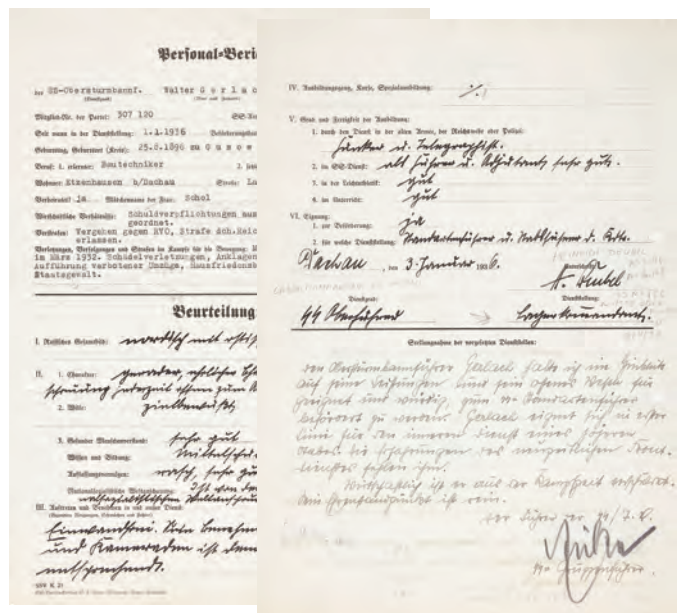 Personal-Beri
der SS-Obersturmbannf. Walter Gerlac
(Dienstgrad) (Vor- und Zuname)
Mitglied-Nr. der Partei: 307 120
Seit wann in der Dienststellung: 1.1.1936 Beförderungsda
Geburtstag, Geburtsort (Kreis): 25.8.1896 zu Gusow
Beruf: 1. erlernter: Bautechniker 2. jetz
Wohnort: Etzenhausen b/Dachau Straße: La
Verheiratet? Ja Mädchenname der Frau: Schol
Wirtschaftliche Verhältnisse: Schuldverpflichtungen aus
geordnet.
Vorstrafen: Vergehen gegen RVO, Strafe dch.Reic
erlassen.
Verletzungen, Verfolgungen und Strafen im Kampfe für die Bewegung:
im März 1932. Schädelverletzungen, Anklagen
Aufführung verbotener Umzüge, Hausfriedensb
Staatsgewalt.
Beurteilung
I. Rassisches Gesamtbild: nordisch mit ostis
II. 1. Charakter: gerader, ehrlicher
jederzeit offen zum
2. Wille: zielbewußt
3. Gesunder Menschenverstand: sehr gut
Wissen und Bildung: Mittelsch
Auffassungsvermögen: rasch, sehr gu
Nationalsozialistische Weltanschauung: Ist von der
nationalsozialistischen Weltanschau
III. Auftreten und Benehmen in und außer Dienst:
Einwandfrei. Sein Benehmen
und Kameraden ist dem
entsprechend.
IV. Ausbildungsgang, Kurse, Spezialausbildung: ./.
V. Grad und Fertigkeit der Ausbildung:
1. durch den Dienst in der alten Armee, der Reichswehr oder Polizei:
Funker u. Telegraphist.
2. im SS-Dienst: als Führer u. Adjutant, sehr gut.
3. in der Leichtathletik: gut
4. im Unterricht: gut
VI. Eignung:
1. zur Beförderung: ja
2. für welche Dienststellung: Standartenführer u. Stabsführer d.
Dachau, den 3. Januar 1936.
HEINRICH DEUBEL
Unterschrift:
H. Deubel
Dienstgrad: Dienststellung:
SS Oberführer Lagerkommandant.
Stellungnahme der vorgesetzten Dienststellen:
den Obersturmbannführer Gerlach halte ich im Hinblick
auf seine Leistungen und sein offenes Wesen für
geeignet und würdig, zum SS-Standartenführer
befördert zu werden. Gerlach eignet sich in erster
Linie für den inneren Dienst eines höheren
Stabes, die Erfahrungen des
fehlen ihm.
ist er aus der Kampfzeit
ist rein.
Der Führer der SS/T.V.
Eicke
SS-Gruppenführer.